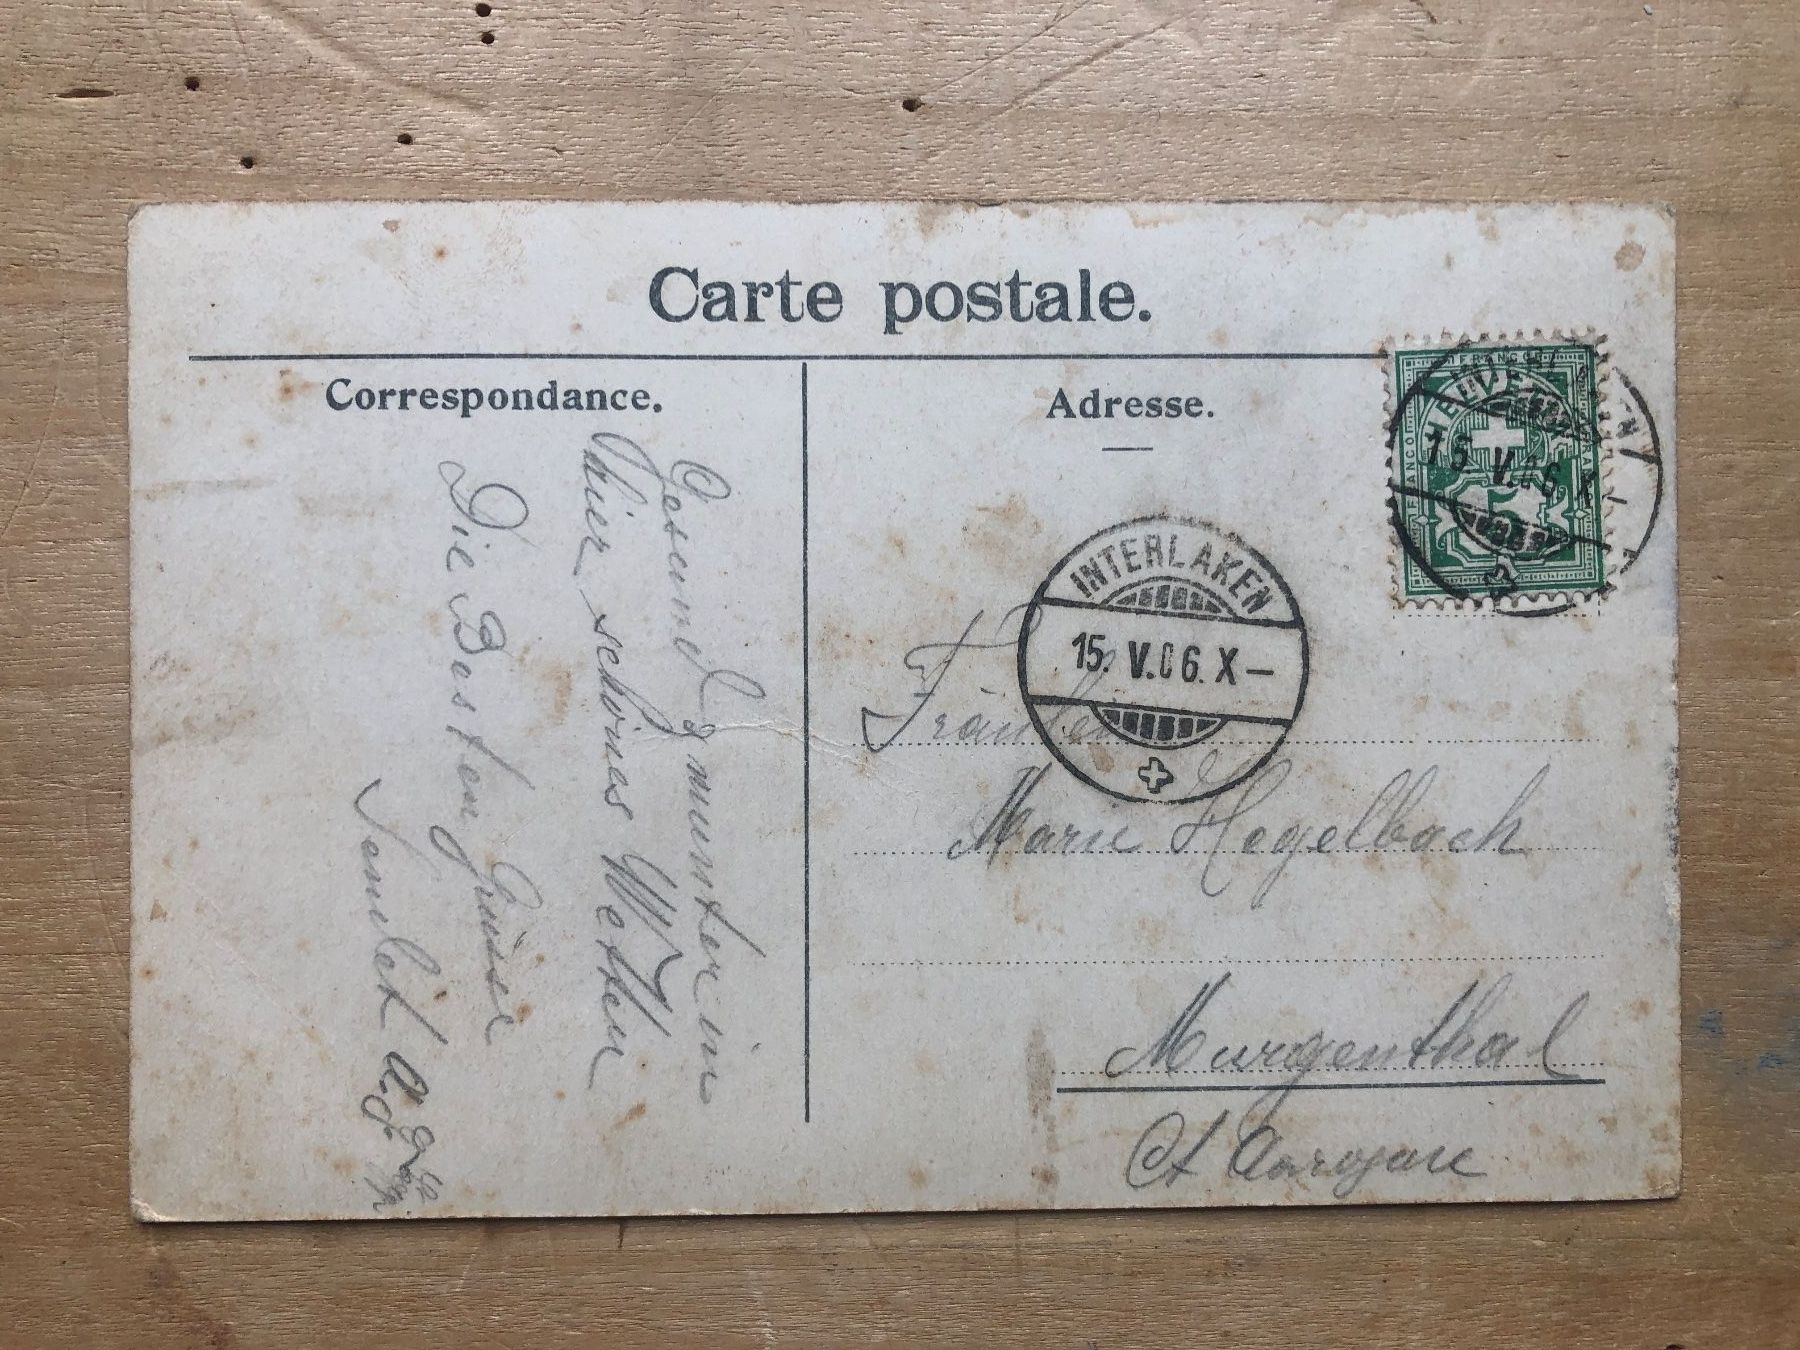 Carte postale.
Correspondance.
Gesund & munter in
hier schönes Wetter
Die Besten Grüsse
Adresse.
FRANCO
HELVETIA
FRANCO
5
15 V.06 X
INTERLAKEN
15. V.06. X—
Fräulein
Marie Hegelbach
Murgenthal
Ct Aargau